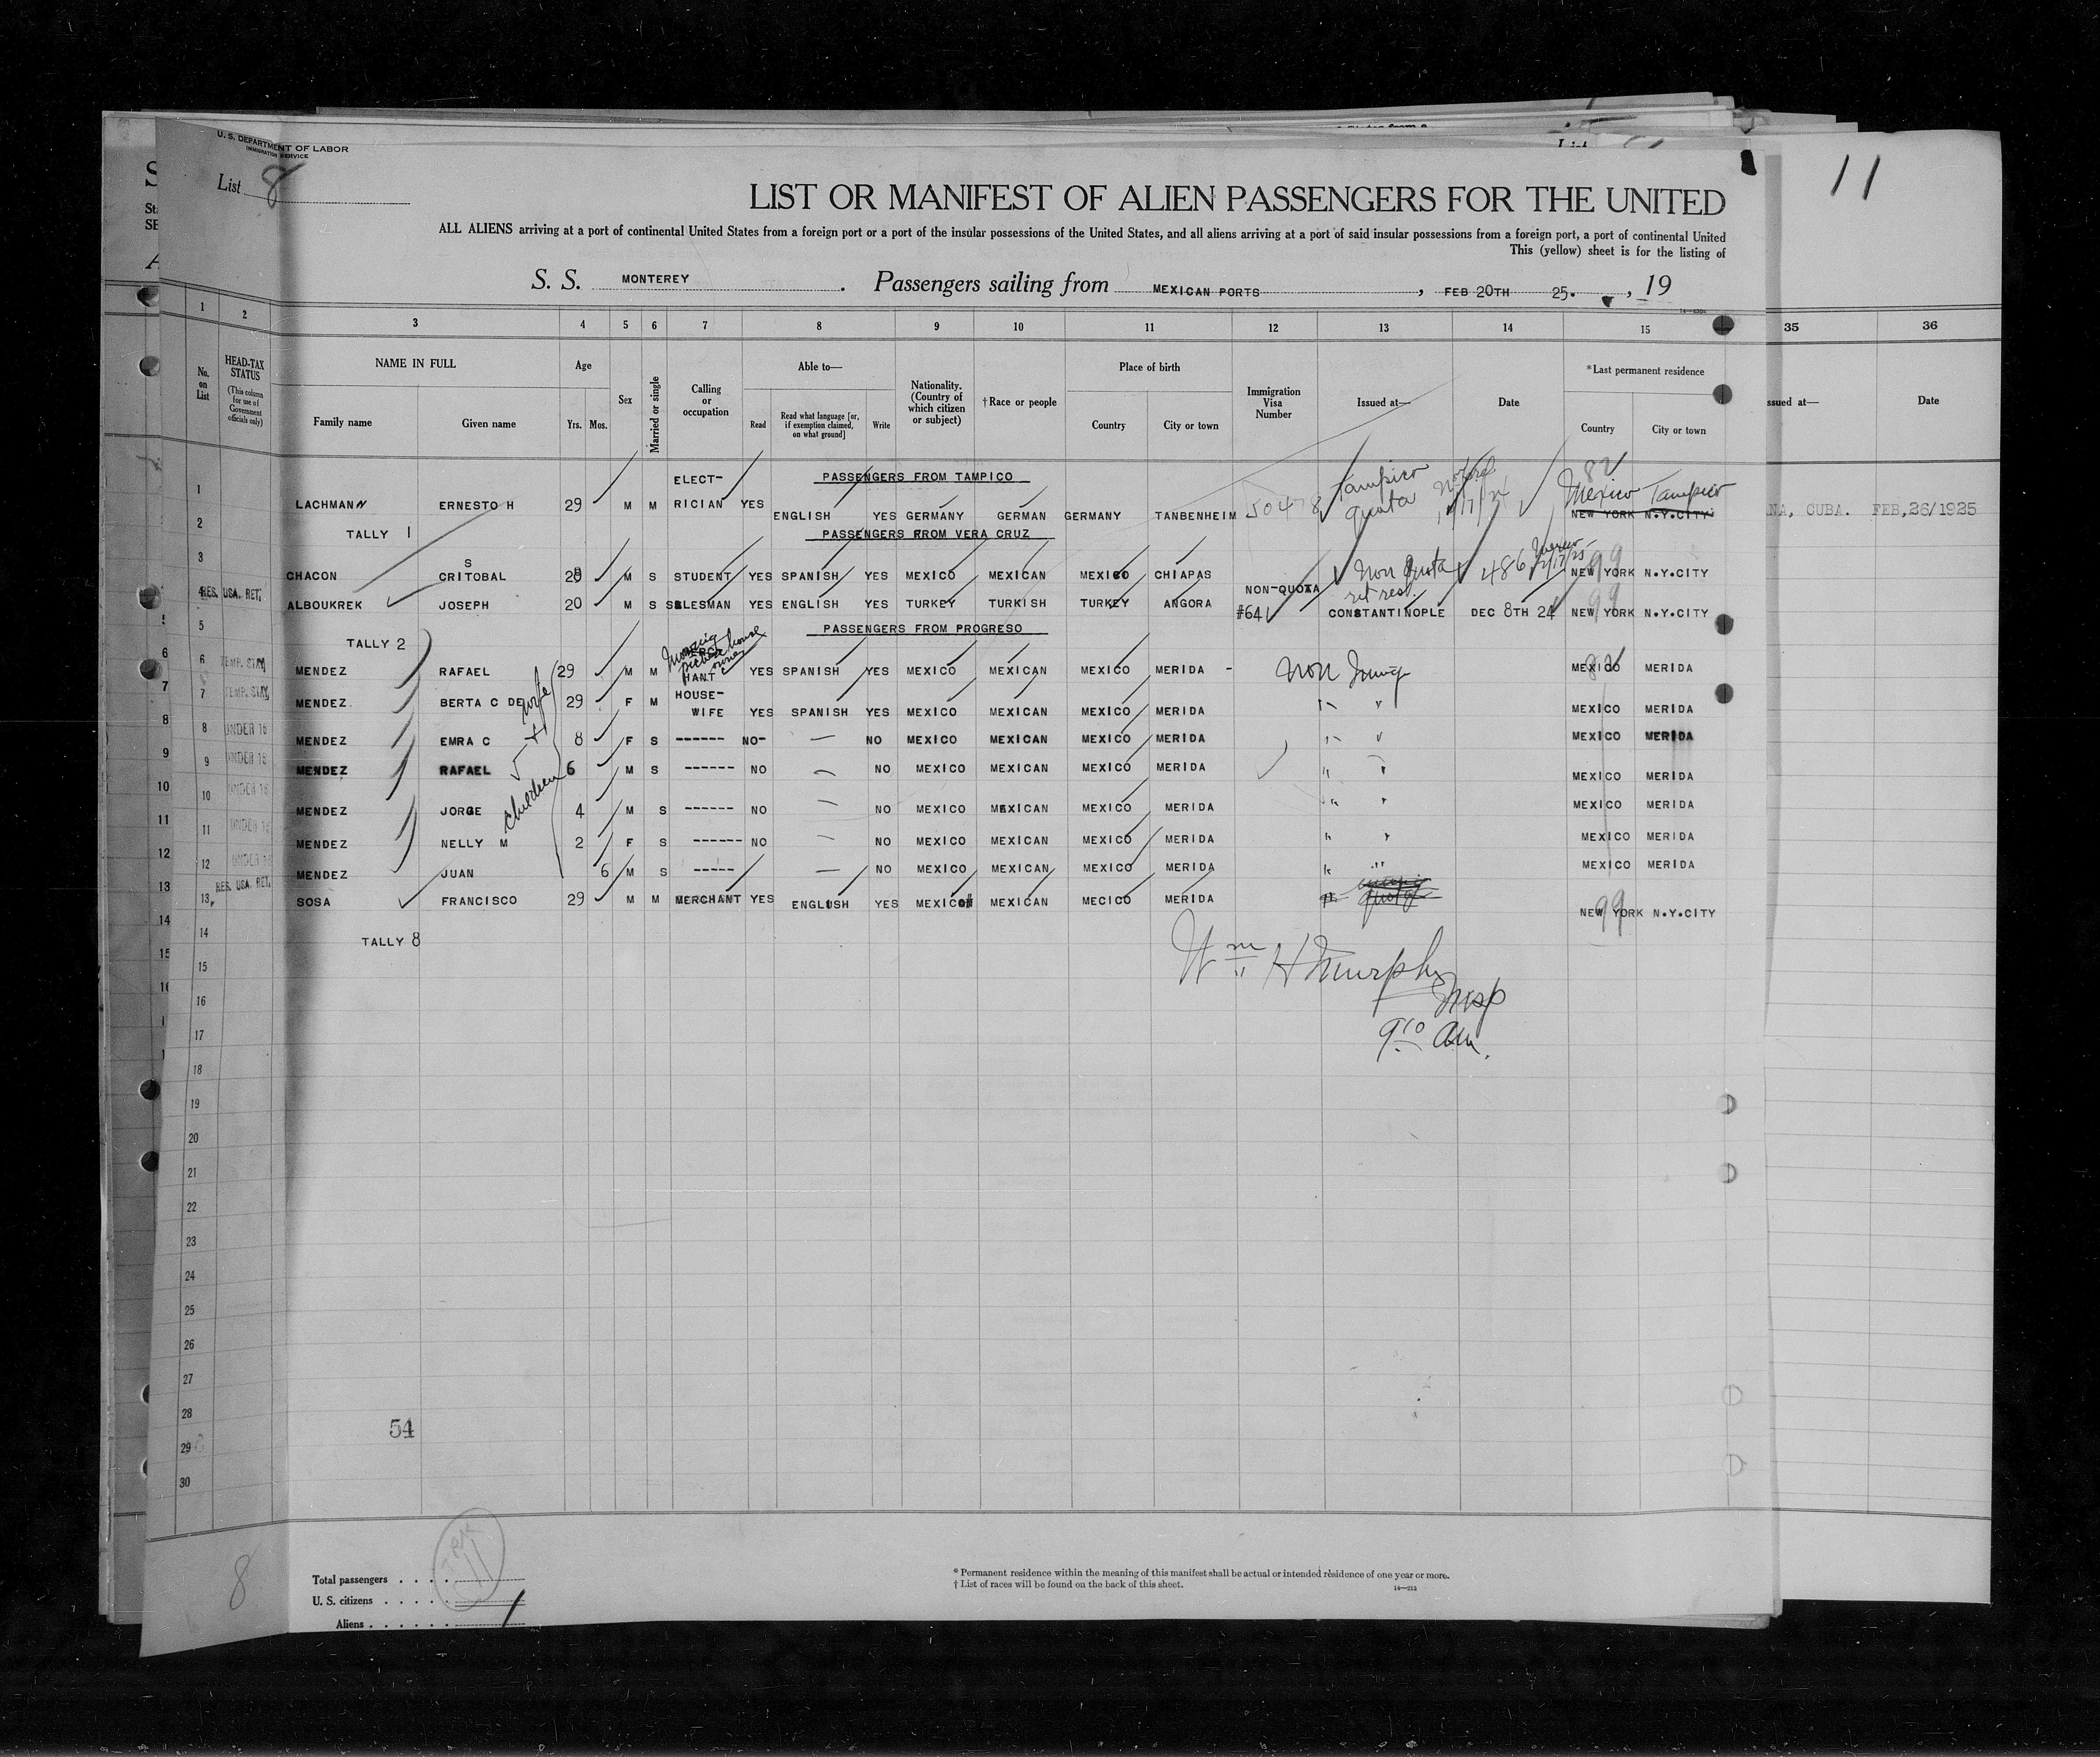 U. S. DEPARTMENT OF LABOR
IMMIGRATION SERVICE
List 8
11
LIST OR MANIFEST OF ALIEN PASSENGERS FOR THE UNITED
ALL ALIENS arriving at a port of continental United States from a foreign port or a port of the insular possessions of the United States, and all aliens arriving at a port of said insular possessions from a foreign port, a port of continental United
This (yellow) sheet is for the listing of
S. S. MONTEREY. Passengers sailing from MEXICAN PORTS, FEB 20TH 25., 19
1 2 3 4 5 6 7 8 9 10 11 12 13 14 15 35 36
No. on List
HEAD-TAX STATUS (This column for use of Government officials only)
NAME IN FULL
Family name Given name
Age
Yrs. Mos.
Sex
Married or single
Calling or occupation
Able to—
Read Read what language [or, if exemption claimed, on what ground] Write
Nationality. (Country of which citizen or subject)
†Race or people
Place of birth
Country City or town
Immigration Visa Number
Issued at—
Date
*Last permanent residence
Country City or town
ssued at— Date
PASSENGERS FROM TAMPICO
1 LACHMANN ERNESTO H 29 M M ELECT-RICIAN YES ENGLISH YES GERMANY GERMAN GERMANY TANBENHEIM 50478 Tampico Quota 82 Mexico Tampico NEW YORK N.Y.CITY
NA, CUBA. FEB,26/1925
2 TALLY 1 PASSENGERS FROM VERA CRUZ
3 CHACON S CRITOBAL 28 M S STUDENT YES SPANISH YES MEXICO MEXICAN MEXICO CHIAPAS Non Quota 486 99 NEW YORK N.Y.CITY
4 RES. USA. RET. ALBOUKREK JOSEPH 20 M S SALESMAN YES ENGLISH YES TURKEY TURKISH TURKEY ANGORA NON-QUOTA #641 ret res. CONSTANTINOPLE DEC 8TH 24 99 NEW YORK N.Y.CITY
5 TALLY 2 PASSENGERS FROM PROGRESO
6 TEMP. STAY MENDEZ RAFAEL 29 M M Moving picture house owner HANT YES SPANISH YES MEXICO MEXICAN MEXICO MERIDA - Non Immig 82 MEXICO MERIDA
7 TEMP. STAY MENDEZ. BERTA C DE wife 29 F M HOUSE-WIFE YES SPANISH YES MEXICO MEXICAN MEXICO MERIDA " " MEXICO MERIDA
8 UNDER 16 MENDEZ EMRA C + 8 F S ------ NO- — NO MEXICO MEXICAN MEXICO MERIDA " " MEXICO MERIDA
9 UNDER 16 MENDEZ RAFAEL 5 children 6 M S ------ NO — NO MEXICO MEXICAN MEXICO MERIDA " " MEXICO MERIDA
10 UNDER 16 MENDEZ JORGE 4 M S ------ NO — NO MEXICO MEXICAN MEXICO MERIDA " " MEXICO MERIDA
11 UNDER 16 MENDEZ NELLY M 2 F S ------ NO — NO MEXICO MEXICAN MEXICO MERIDA " " MEXICO MERIDA
12 UNDER 16 MENDEZ JUAN 6 M S ----- — NO MEXICO MEXICAN MEXICO MERIDA " " MEXICO MERIDA
13 RES. USA. RET. SOSA FRANCISCO 29 M M MERCHANT YES ENGLISH YES MEXICO MEXICAN MECICO MERIDA 99 NEW YORK N.Y.CITY
14 TALLY 8
Wm H Murphy
Insp
9:10 am.
15
16
17
18
19
20
21
22
23
24
25
26
27
28
54
29
30
8
11
Total passengers . . . .
U. S. citizens . . . . .
Aliens . . . . . .
* Permanent residence within the meaning of this manifest shall be actual or intended residence of one year or more.
† List of races will be found on the back of this sheet. 14—213